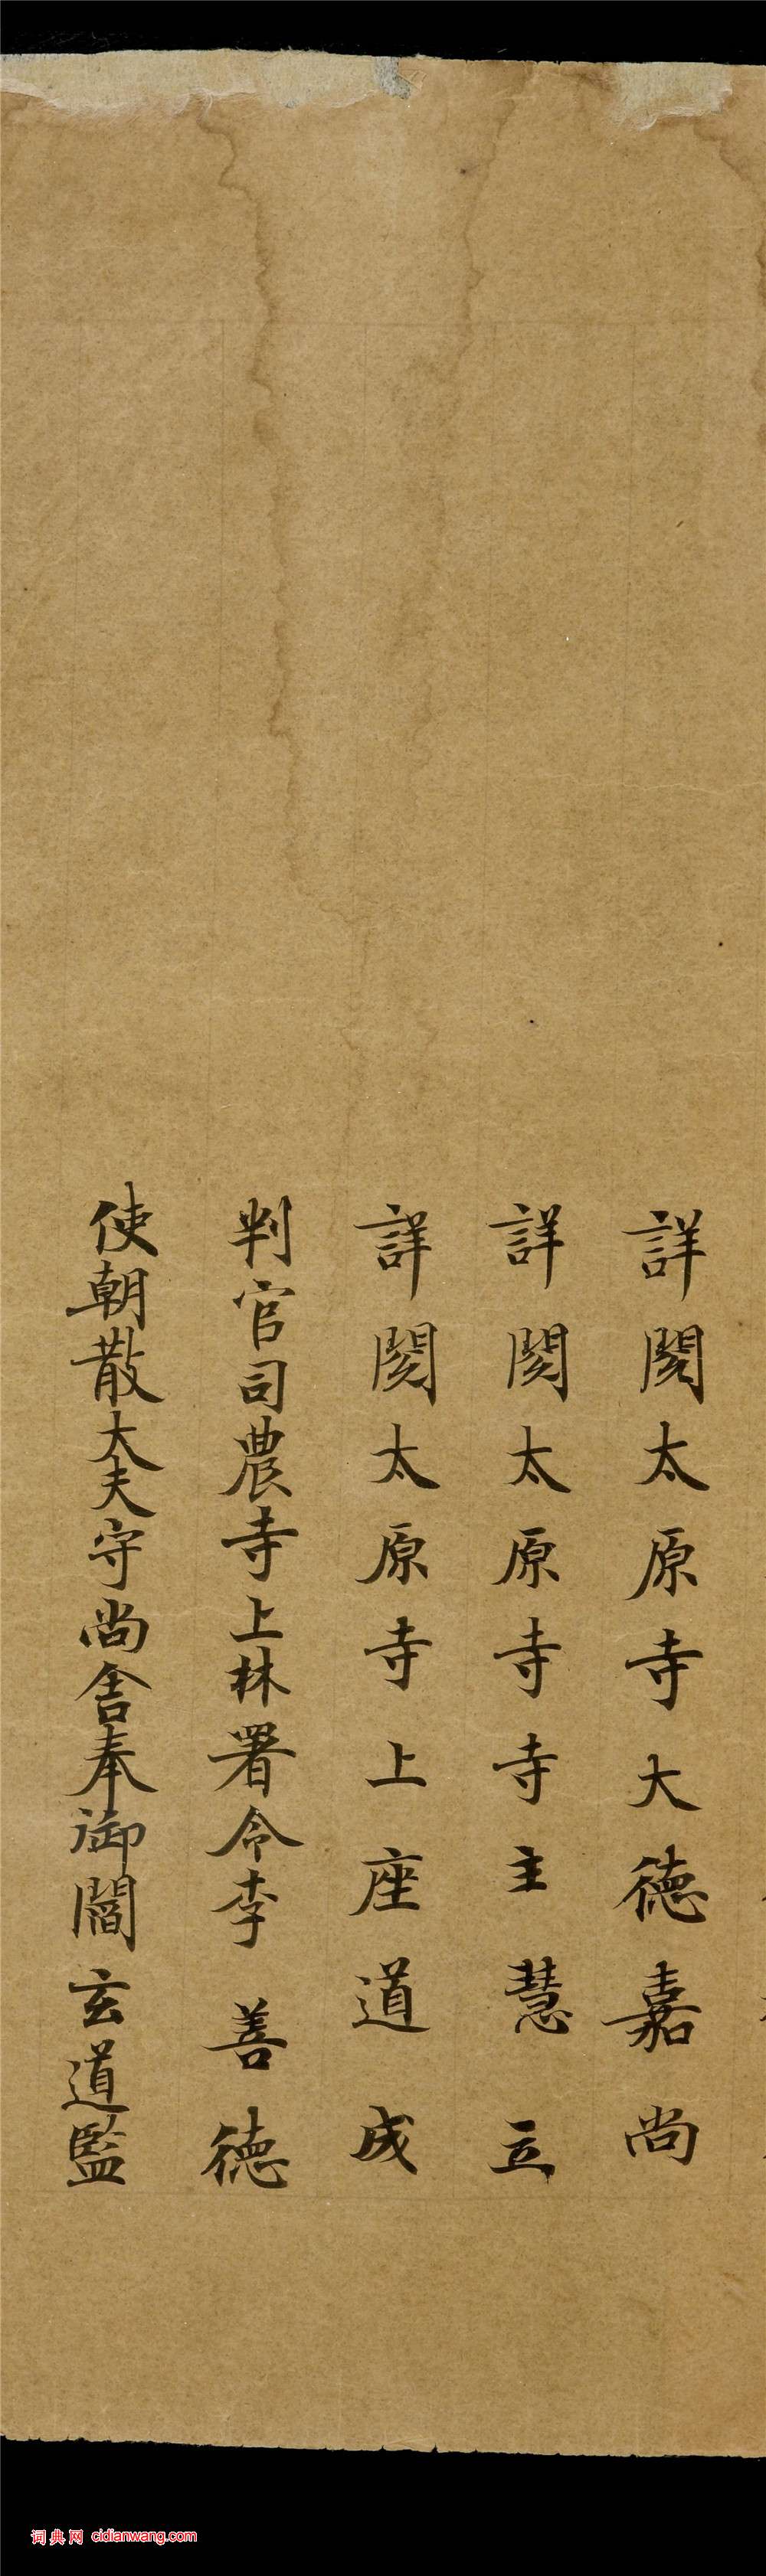 詳閱太原寺大德嘉尚
詳閱太原寺寺主慧立
詳閱太原寺上座道成
判官司農寺上林署令李善德
使朝散大夫守尚舍奉御閻玄道監
词典网 cidianwang.com